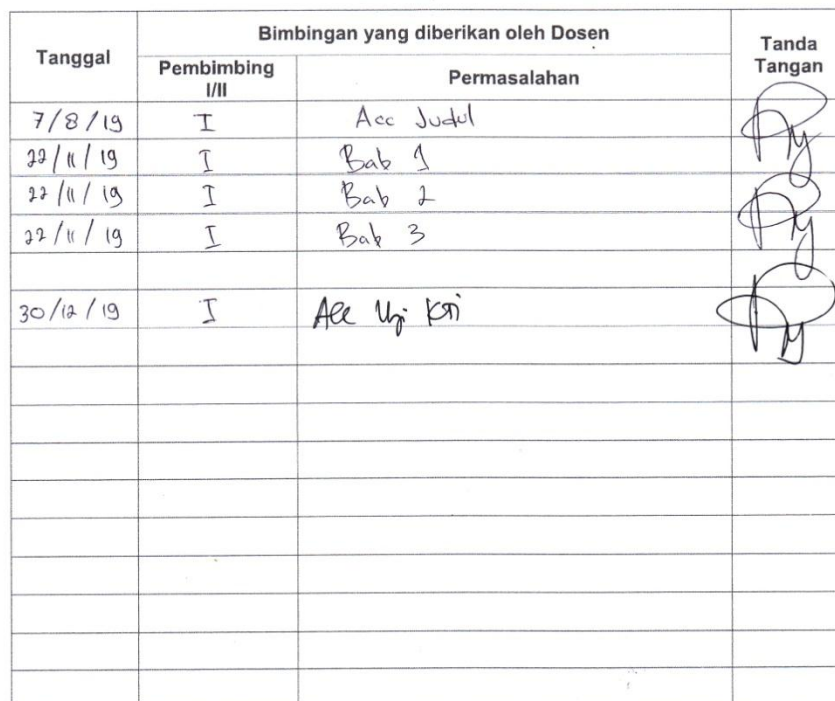 Tanggal Bimbingan yang diberikan oleh Dosen Tanda Tangan
Pembimbing I/II Permasalahan
7/8/19 I Acc Judul
22/11/19 I Bab 1
22/11/19 I Bab 2
22/11/19 I Bab 3
30/12/19 I Acc Uji KTI